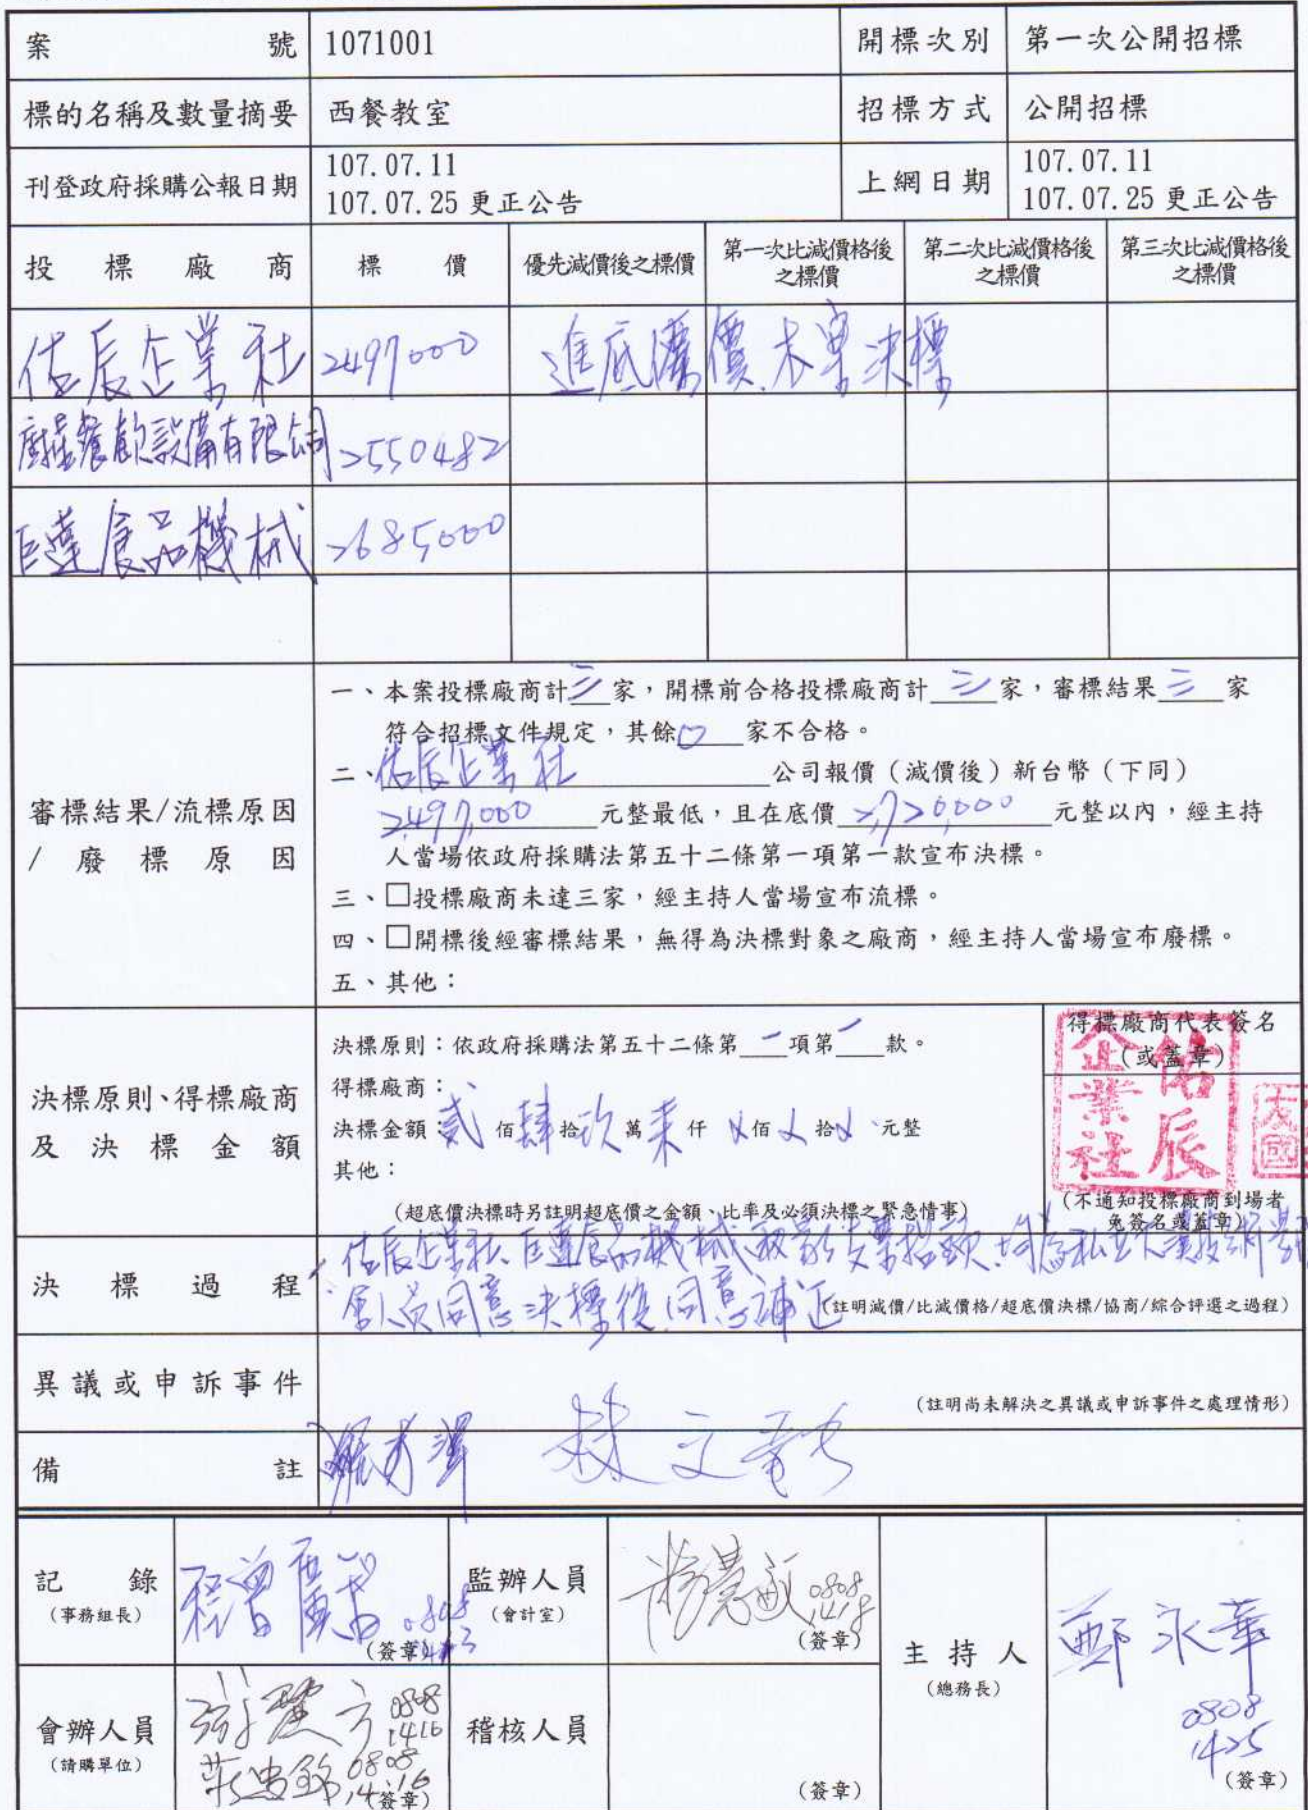 案號 1071001 開標次別 第一次公開招標
標的名稱及數量摘要 西餐教室 招標方式 公開招標
刊登政府採購公報日期 107.07.11 上網日期 107.07.11
107.07.25 更正公告 107.07.25 更正公告
投標廠商 標價 優先減價後之標價 第一次比減價格後之標價 第二次比減價格後之標價 第三次比減價格後之標價
佑辰企業社 2497000 進底價 決標
廚星餐飲設備有限公司 2550482
巨達食品機械 2685000
審標結果/流標原因/廢標原因
一、本案投標廠商計三家，開標前合格投標廠商計三家，審標結果三家
符合招標文件規定，其餘0家不合格。
二、佑辰企業社公司報價（減價後）新台幣（下同）
2,497,000元整最低，且在底價2,720,000元整以內，經主持
人當場依政府採購法第五十二條第一項第一款宣布決標。
三、□投標廠商未達三家，經主持人當場宣布流標。
四、□開標後經審標結果，無得為決標對象之廠商，經主持人當場宣布廢標。
五、其他：
決標原則、得標廠商及決標金額
決標原則：依政府採購法第五十二條第一項第一款。
得標廠商：
決標金額：貳佰肆拾玖萬柒仟 佰 拾 元整
其他：
(超底價決標時另註明超底價之金額、比率及必須決標之緊急情事)
得標廠商代表簽名
(或蓋章)
佑辰企業社
(不通知投標廠商到場者
免簽名或蓋章)
決標過程
佑辰企業社、巨達食品機械
人員同意決標後同意補正
(註明減價/比減價格/超底價決標/協商/綜合評選之過程)
異議或申訴事件 (註明尚未解決之異議或申訴事件之處理情形)
備註 林文彰
記錄 (事務組長) 程曾 0808 (簽章)
監辦人員 (會計室) 0808 1418 (簽章)
主持人 (總務長) 鄭永華 0808 1425 (簽章)
會辦人員 (請購單位) 0808 1416 0808 14:16 (簽章)
稽核人員 (簽章)